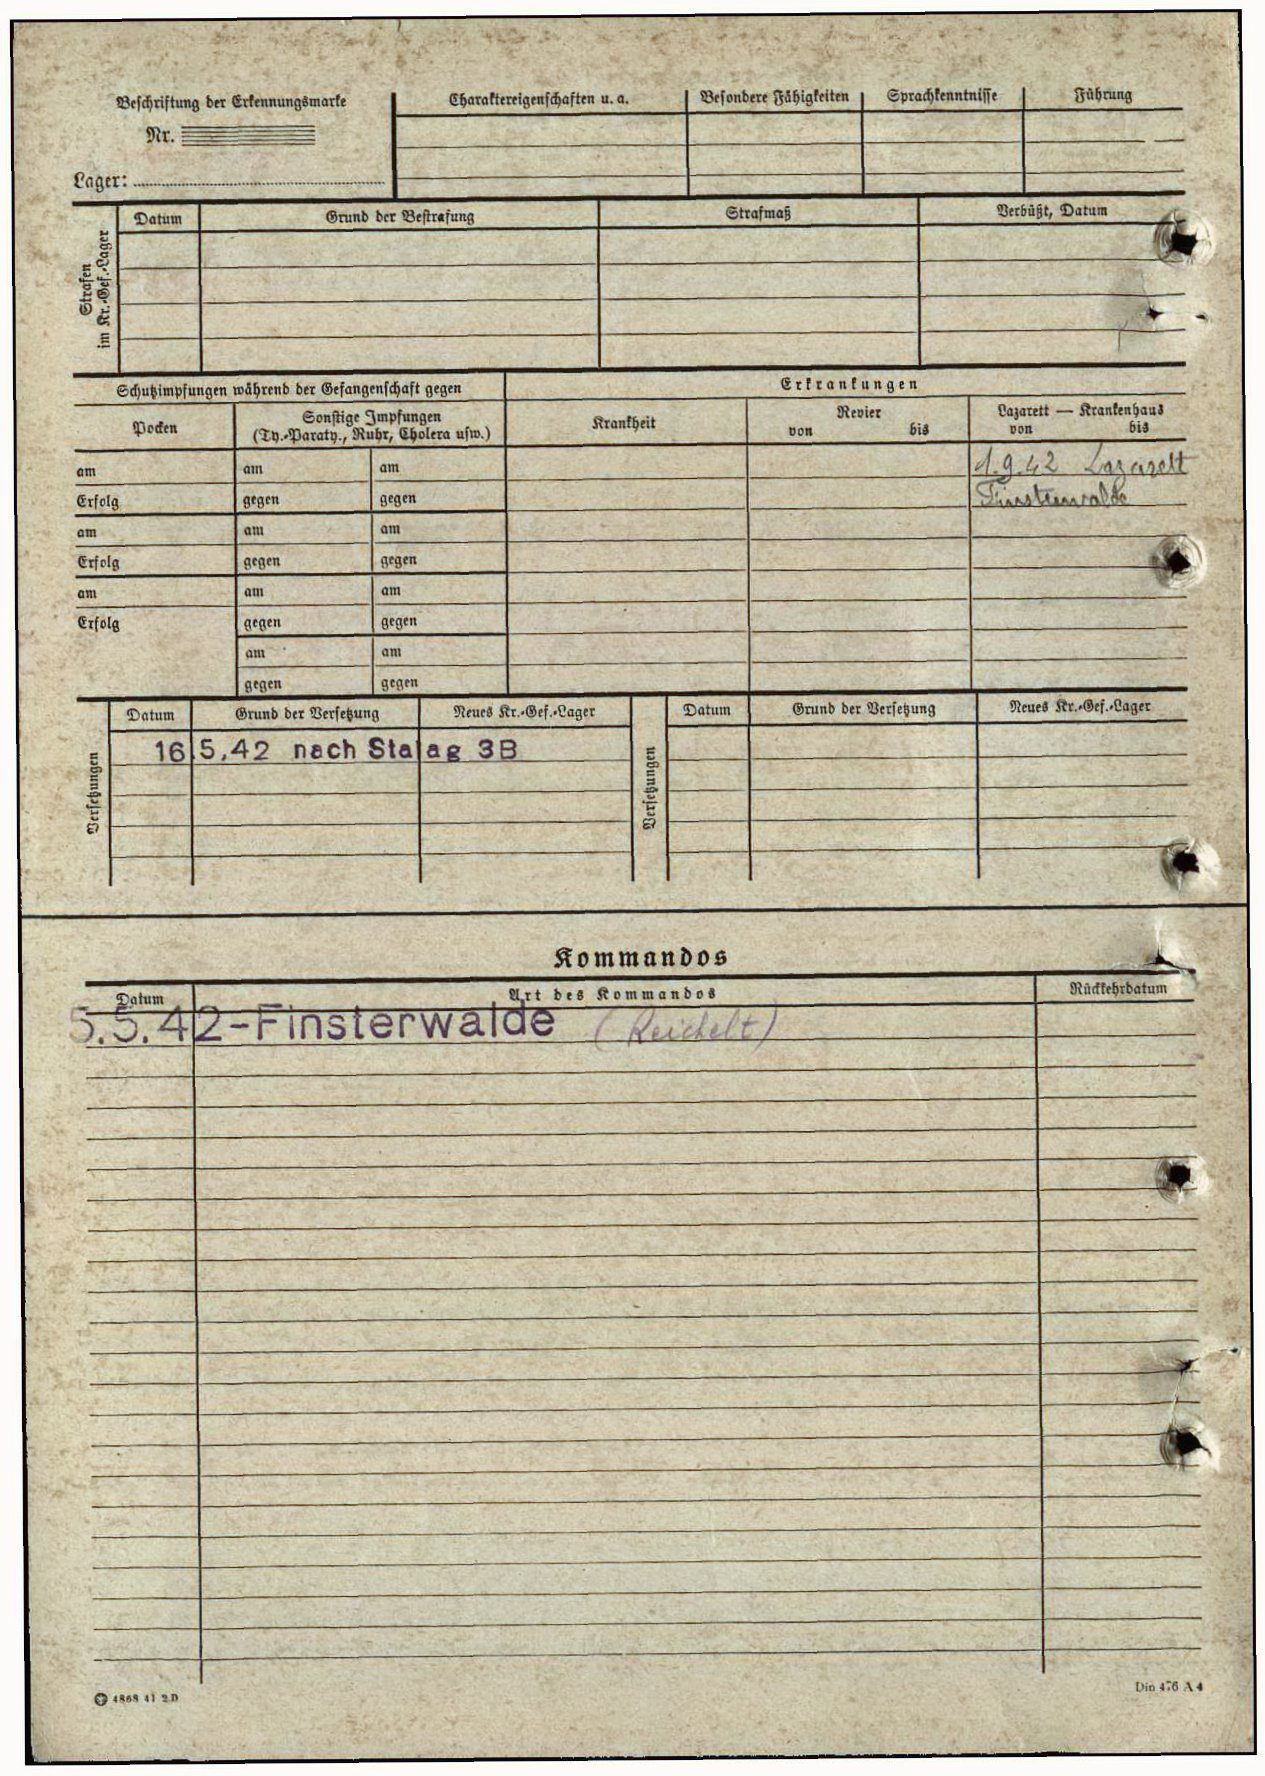 Beschriftung der Erkennungsmarke
Nr.
Lager:
Charaktereigenschaften u. a.
Besondere Fähigkeiten
Sprachkenntnisse
Führung
Strafen
im Kr.-Gef.-Lager
Datum
Grund der Bestrafung
Strafmaß
Verbüßt, Datum
Schutzimpfungen während der Gefangenschaft gegen
Erkrankungen
Pocken
Sonstige Impfungen
(Ty.-Paraty., Ruhr, Cholera usw.)
Krankheit
Revier
von bis
Lazarett — Krankenhaus
von bis
am am am
1.9.42 Lazarett
Erfolg gegen gegen
Finsterwalde
am am am
Erfolg gegen gegen
am am am
Erfolg gegen gegen
am am
gegen gegen
Versetzungen
Datum Grund der Versetzung Neues Kr.-Gef.-Lager
16.5.42 nach Stalag 3B
Versetzungen
Datum Grund der Versetzung Neues Kr.-Gef.-Lager
Kommandos
Datum Art des Kommandos Rückkehrdatum
5.5.42-Finsterwalde (Reichelt)
4868 41 2 D
Din 476 A 4